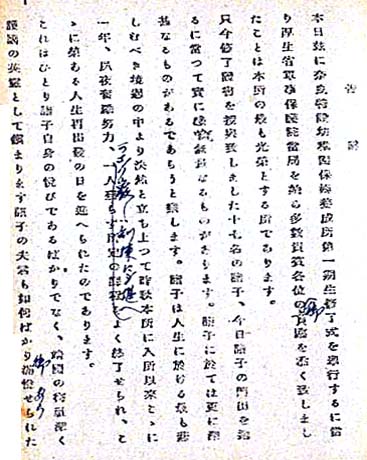 本日玆に奈良特設幼稚園保姆養成所第一期生修了式を擧行するに當
り厚生省軍事保護院當局を始め多數貴賓各位の御賁臨を忝く致しまし
たことは本所の最も光榮とする所であります。
只今修了證書を授與致しました十七名の諸子、今日諸子の門出を送
るに當つて實に感慨無量なるものがあります。諸子に於ては更に深
甚なるものがあるであらうと察します。諸子は人生に於ける最も悲
しむべき境遇の中より決然と立ち上つて昨秋本所に入所以來こゝに
一年、日夜奮勵努力、一人 所定の課程をよく終了せられ、こ
ゝに榮ある人生再出發の日を迎へられたのであります。
これはひとり諸子自身の悦びであるばかりでなく、 深く
護國の英靈として鎭まります諸子の夫君も如何ばかり滿悦せられた